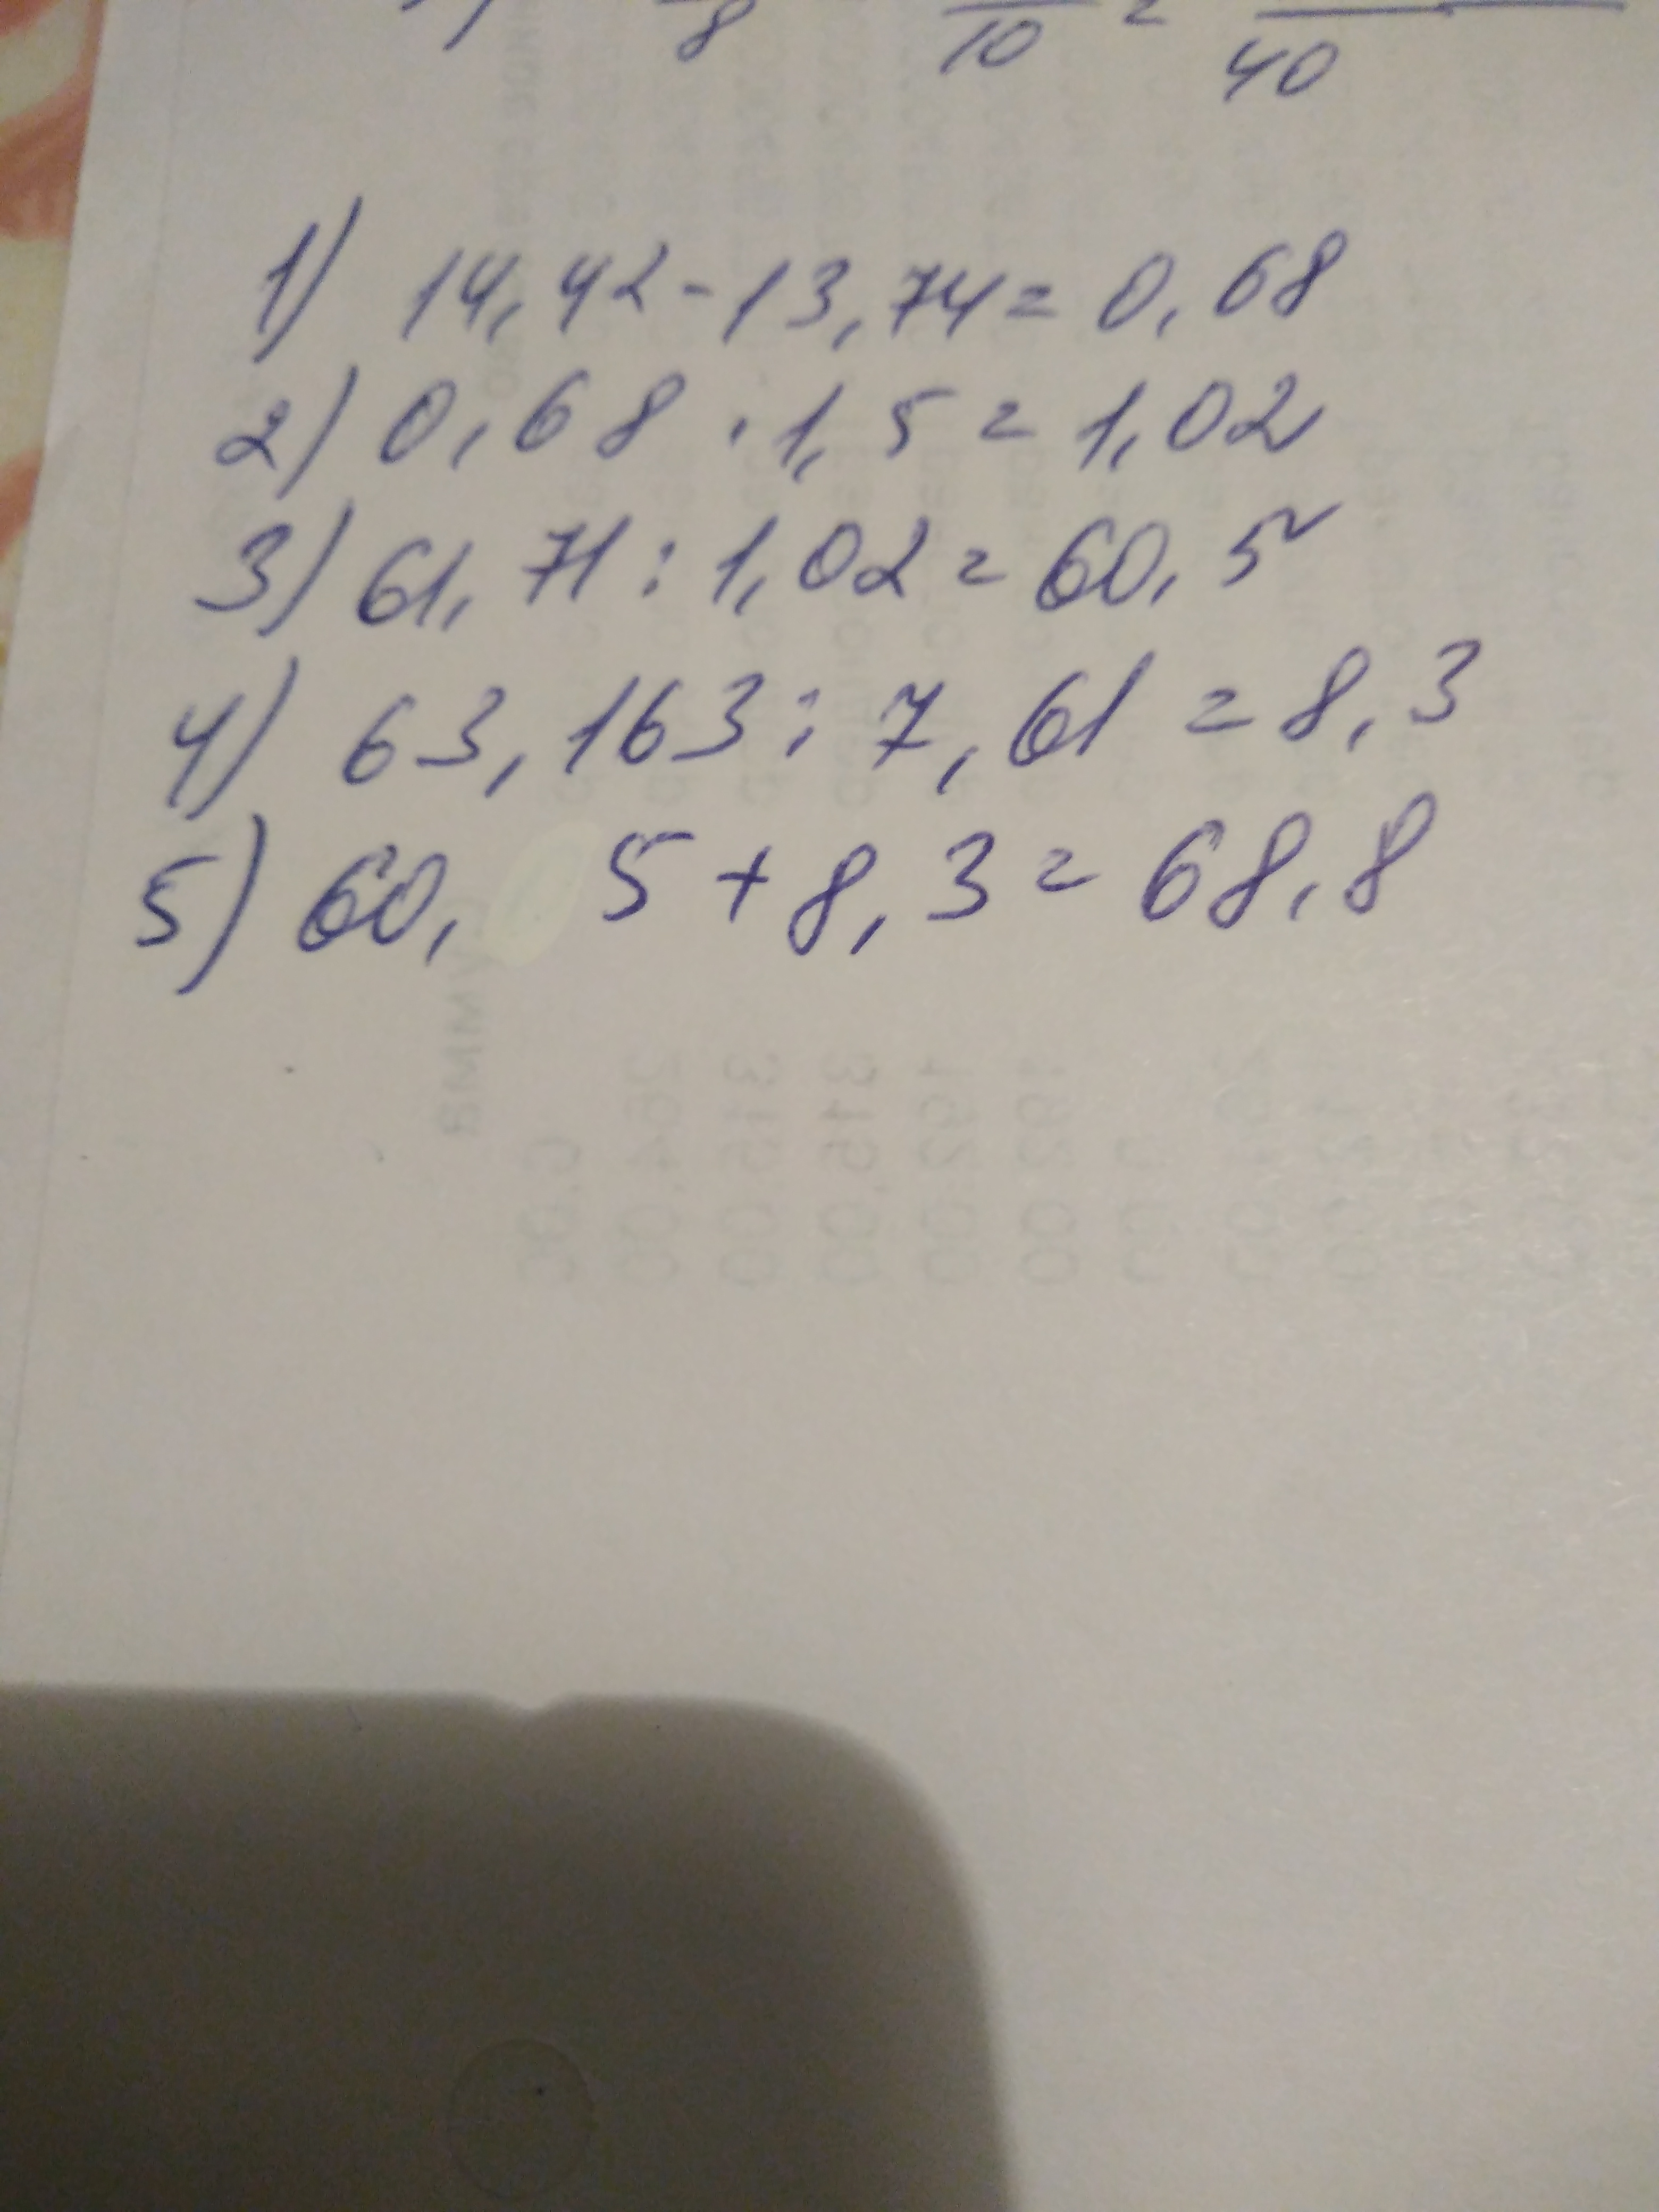 8 10 = 40
1) 14,42-13,74=0,68
2) 0,68·1,5=1,02
3) 61,71:1,02=60,5
4) 63,163:7,61=8,3
5) 60, 5+8,3=68,8